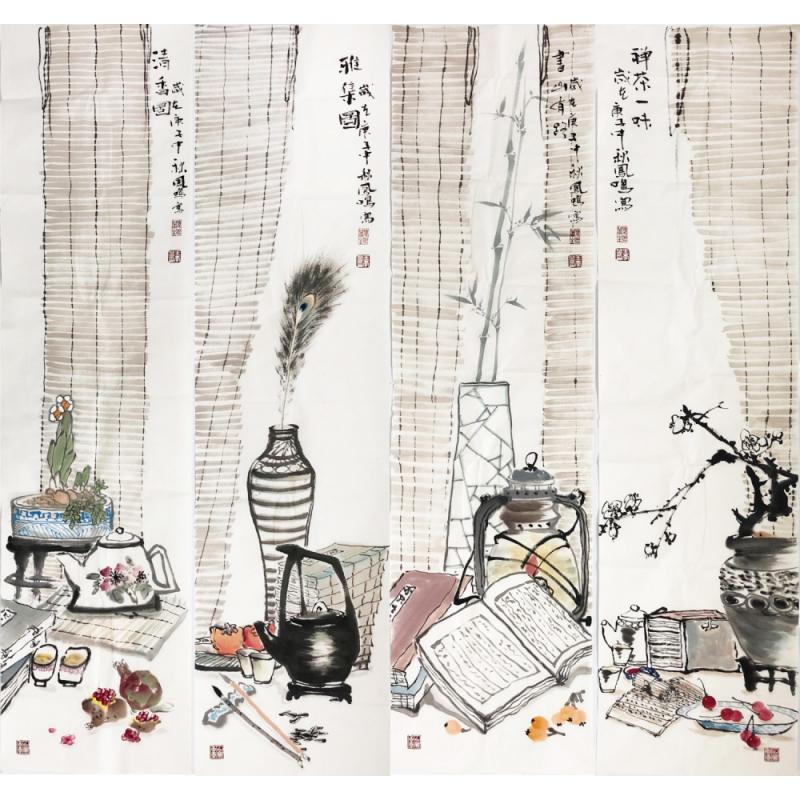 清香圖
歲在庚子年秋鳳鳴寫
雅集圖
歲在庚子年秋鳳鳴寫
書山有路
歲在庚子年秋鳳鳴寫
禪茶一味
歲在庚子年秋鳳鳴寫